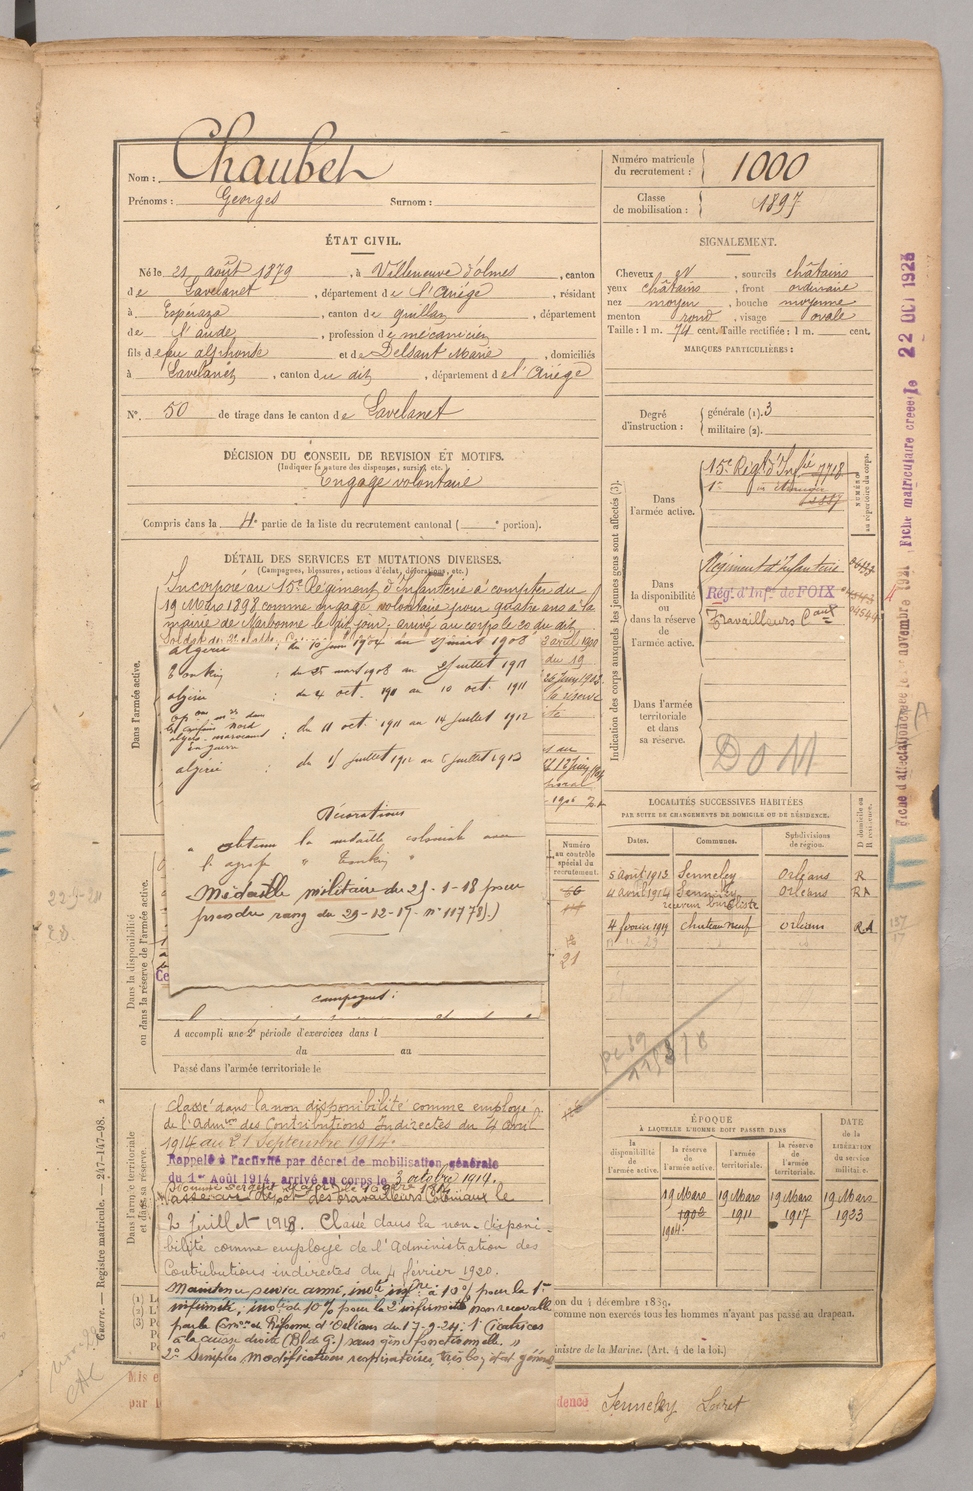 Nom : Chaubet
Prénoms : Georges Surnom :
Numéro matricule du recrutement : 1000
Classe de mobilisation : 1897
ÉTAT CIVIL.
Né le 21 août 1879, à Villeneuve d'olmes, canton
de Lavelanet, département de l'Ariége, résidant
à Espéraza, canton de quillan, département
de l'aude, profession de mécanicien
fils de feu alphonse et de Delsant Marie, domiciliés
à Lavelanet, canton du dit, département de l'Ariége
N°. 50 de tirage dans le canton de Lavelanet
SIGNALEMENT.
Cheveux et, sourcils châtains
yeux châtains, front ordinaire
nez moyen, bouche moyenne
menton rond, visage ovale
Taille : 1 m. 74 cent. Taille rectifiée : 1 m. cent.
MARQUES PARTICULIÈRES :
Degré d'instruction : générale (1). 3
militaire (2).
DÉCISION DU CONSEIL DE REVISION ET MOTIFS.
(Indiquer la nature des dispenses, sursis, etc.)
Engagé volontaire
Compris dans la 4e partie de la liste du recrutement cantonal ( e portion).
DÉTAIL DES SERVICES ET MUTATIONS DIVERSES.
(Campagnes, blessures, actions d'éclat, décorations, etc.)
Dans l'armée active.
Incorporé au 15e Régiment d'Infanterie à compter du
19 Mars 1898 comme engagé volontaire pour quatre ans à la
mairie de Narbonne le dit jour, arrivé au corps le 20 du dit
Soldat de 2e classe.
algérie : du 10 juin 1904 au
Tonkin : du 25 mars 1908 au 2 juillet 1911
algérie : du 4 oct. 1911 au 10 oct. 1911
algéro-marocains
en guerre
du 11 oct. 1911 au 14 juillet 1912
algérie : du 15 juillet 1912 au juillet 1913
Décorations
a obtenu la médaille coloniale avec
l'agrafe "Tonkin"
Médaille militaire du 25-1-18 pour
prendre rang du 29-12-17. n° 11778).)
campagnes :
Dans la disponibilité ou dans la réserve de l'armée active.
A accompli une 2e période d'exercices dans l
du au
Passé dans l'armée territoriale le
Dans l'armée territoriale et dans sa réserve.
Classé dans la non disponibilité comme employé
de l'Admon des Contributions Indirectes du 4 avril
1914 au 21 Septembre 1914.
Rappelé à l'activité par décret de mobilisation générale
du 1er Août 1914, arrivé au corps le 3 octobre 1914.
Passé au dépôt des travailleurs Coloniaux le
2 juillet 1918. Classé dans la non-disponi-
bilité comme employé de l'Administration des
Contributions indirectes du 4 février 1920.
Maintenu service armé, invté infre à 10% pour la 1re
infirmité ; invté de 10% pour la 2e infirmité non recevable
par la Comon de Réforme d'Orléans du 17-9-24 : 1° Cicatrices
à la cuisse droite (Bl de G.) sans gêne fonctionnelle.
2° Simples modifications respiratoires, très bon état général
Indication des corps auxquels les jeunes gens sont affectés (3).
Dans l'armée active.
15e Régt d'Infie 7718
NUMÉRO au répertoire du corps.
Dans la disponibilité ou dans la réserve de l'armée active.
Régiment d'Infanterie
Rég. d'Inf. de FOIX
Travailleurs Caux
Dans l'armée territoriale et dans sa réserve.
DOM
LOCALITÉS SUCCESSIVES HABITÉES
PAR SUITE DE CHANGEMENTS DE DOMICILE OU DE RÉSIDENCE.
Dates. Communes. Subdivisions de région. D domicile ou R résidence.
5 août 1913 Senneley Orléans R
4 avril 1914 Senneley Orléans RA
receveur buraliste
4 février 1919 chateauneuf orléans RA
Numéro au contrôle spécial du recrutement.
21
ÉPOQUE
À LAQUELLE L'HOMME DOIT PASSER DANS
la disponibilité de l'armée active. la réserve de l'armée active. l'armée territoriale. la réserve de l'armée territoriale. DATE de la LIBÉRATION du service militaire.
19 Mars 1902 19 Mars 1911 19 Mars 1917 19 Mars 1923
1904
on du 4 décembre 1889.
comme non exercés tous les hommes n'ayant pas passé au drapeau.
inistre de la Marine. (Art. 4 de la loi.)
Mis e
par
dence Senneley Loiret
Guerre. — Registre matricule. — 247-147-98. 2
Fiche matriculaire créée le 22 OCT 1923